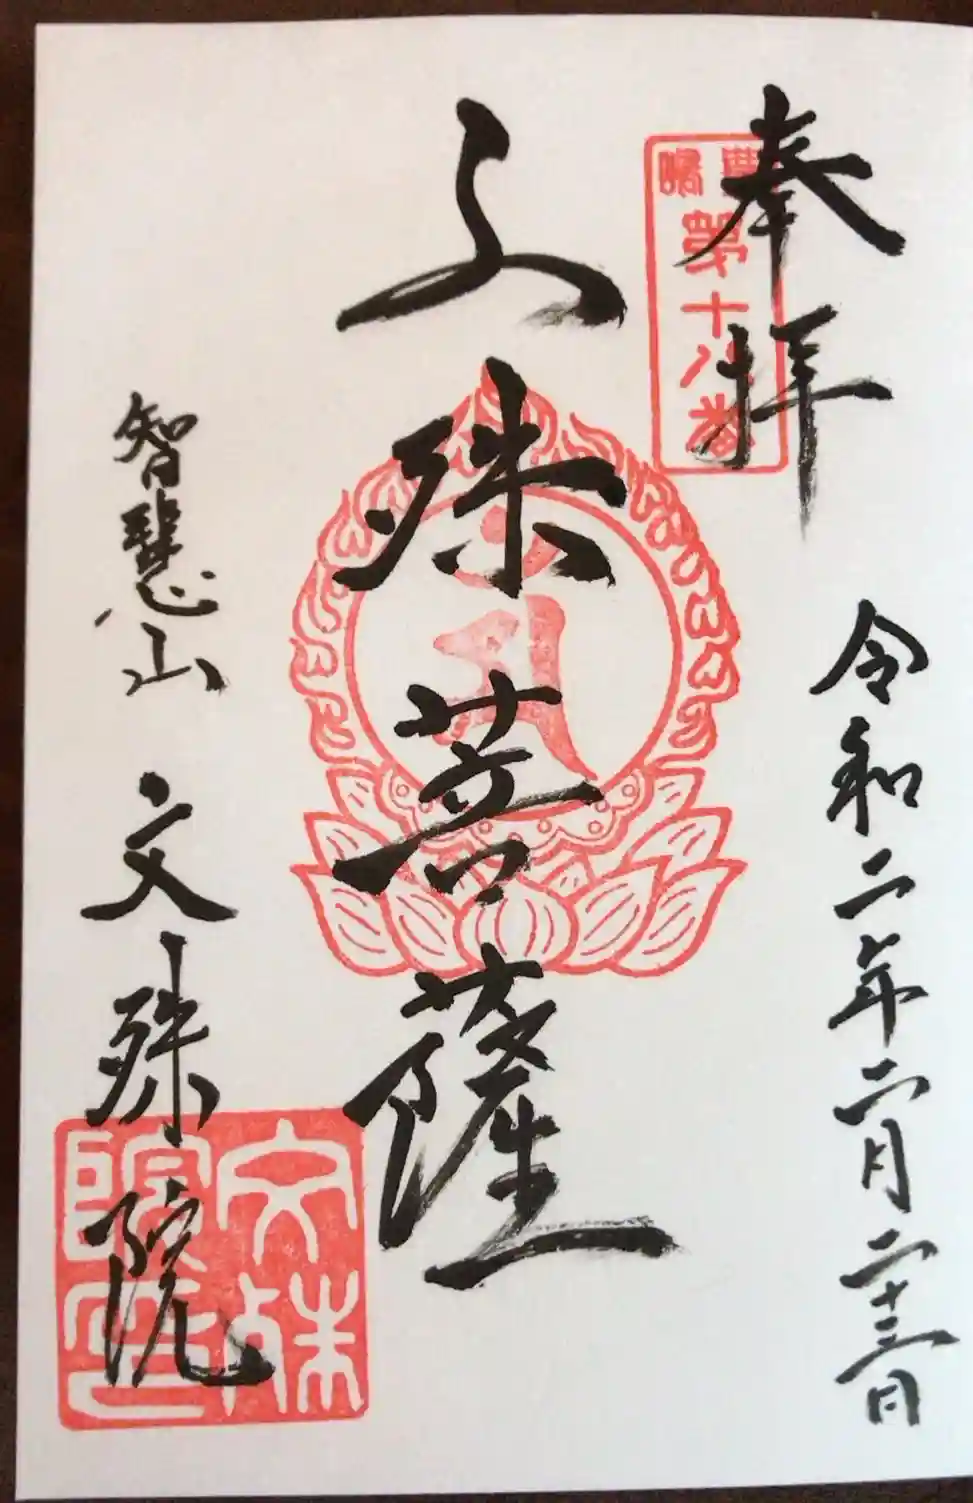 奉拝
令和二年二月二十三日
豊嶋
第十八番
文殊菩薩
智慧山 文殊院
文殊
院印